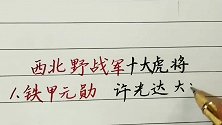 西北野战军十大虎将
1.铁甲元勋 许光达 大